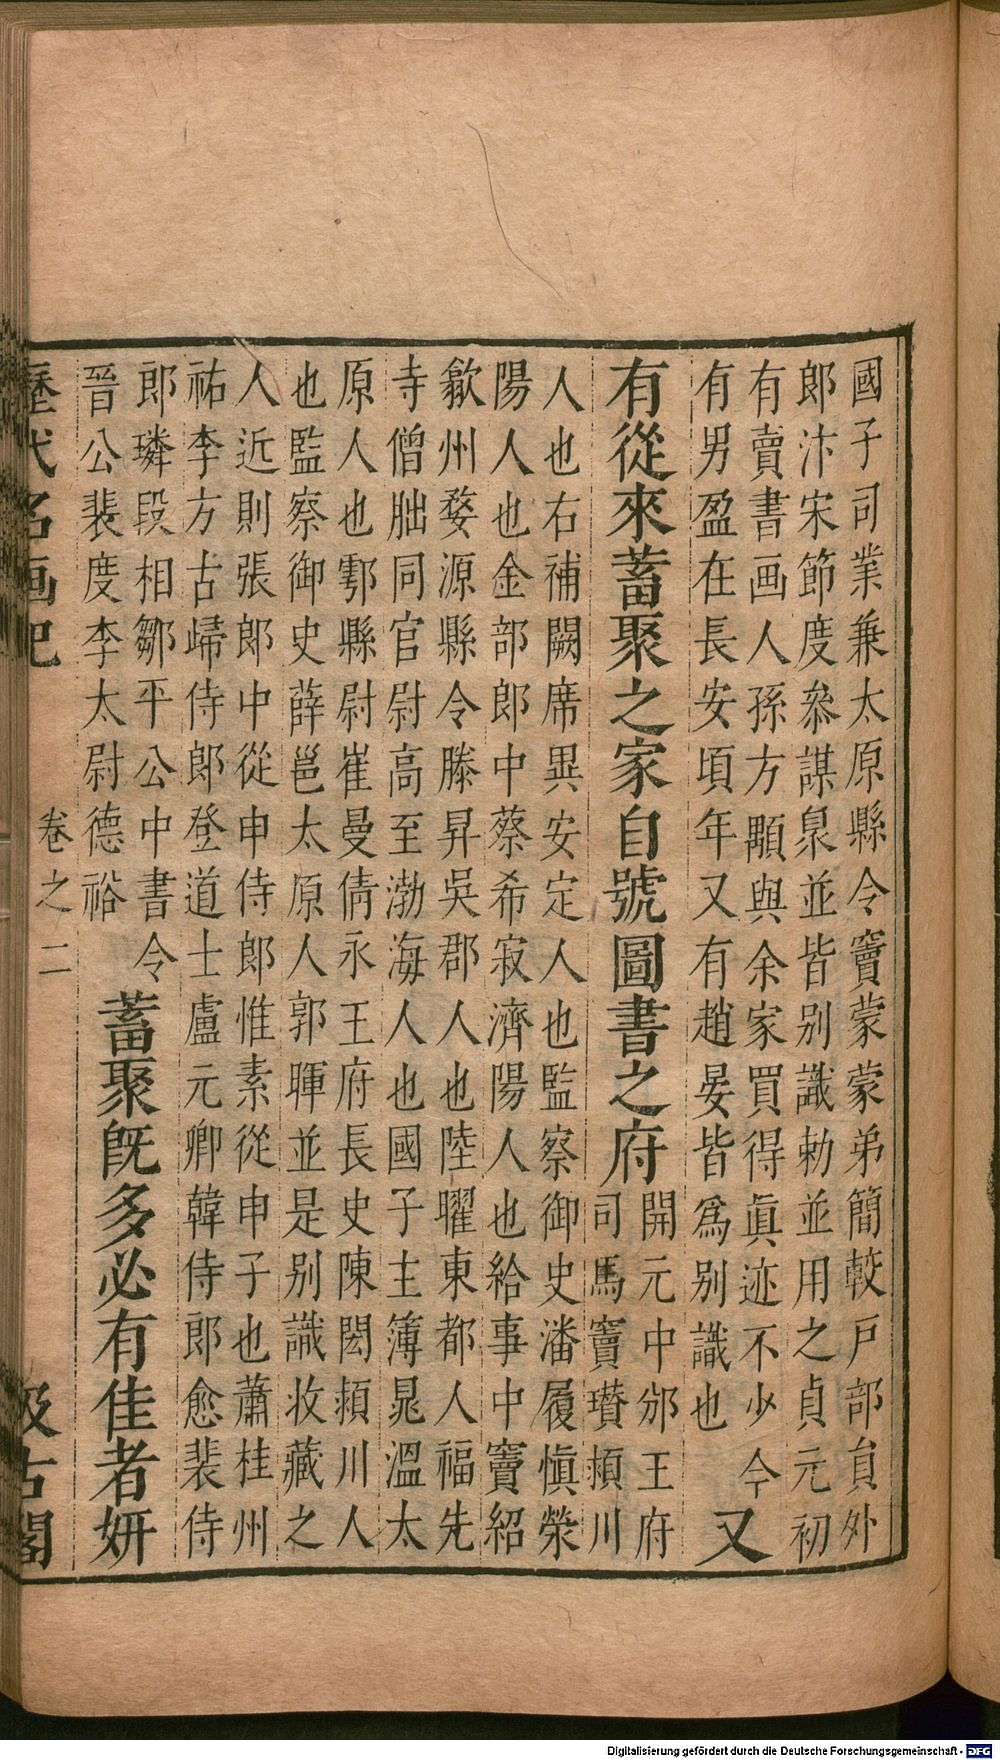 國子司業兼太原縣令竇蒙蒙弟簡較戸部貟外
郎汴宋節度叅謀臮並皆別識勅並用之貞元初
有賣書画人孫方顒與余家買得眞迹不少今
有男盈在長安頃年又有趙晏皆爲別識也
又
有從來蓄聚之家自號圖書之府
開元中邠王府
司馬竇瓉頴川
人也右補闕席異安定人也監察御史潘履愼榮
陽人也金部郎中蔡希寂濟陽人也給事中竇紹
歙州婺源縣令滕昇吳郡人也陸曜東都人福先
寺僧朏同官尉高至渤海人也國子主簿晁溫太
原人也鄠縣尉崔曼倩永王府長史陳閎頴川人
也監察御史薛邕太原人郭暉並是別識收藏之
人近則張郎中從申侍郎惟素從申子也蕭桂州
祐李方古歸侍郎登道士盧元卿韓侍郎愈裴侍
郎璘段相鄒平公中書令
晉公裴度李太尉德裕
蓄聚旣多必有佳者妍
歷代名画記
卷之二
汲古閣
Digitalisierung gefördert durch die Deutsche Forschungsgemeinschaft - DFG